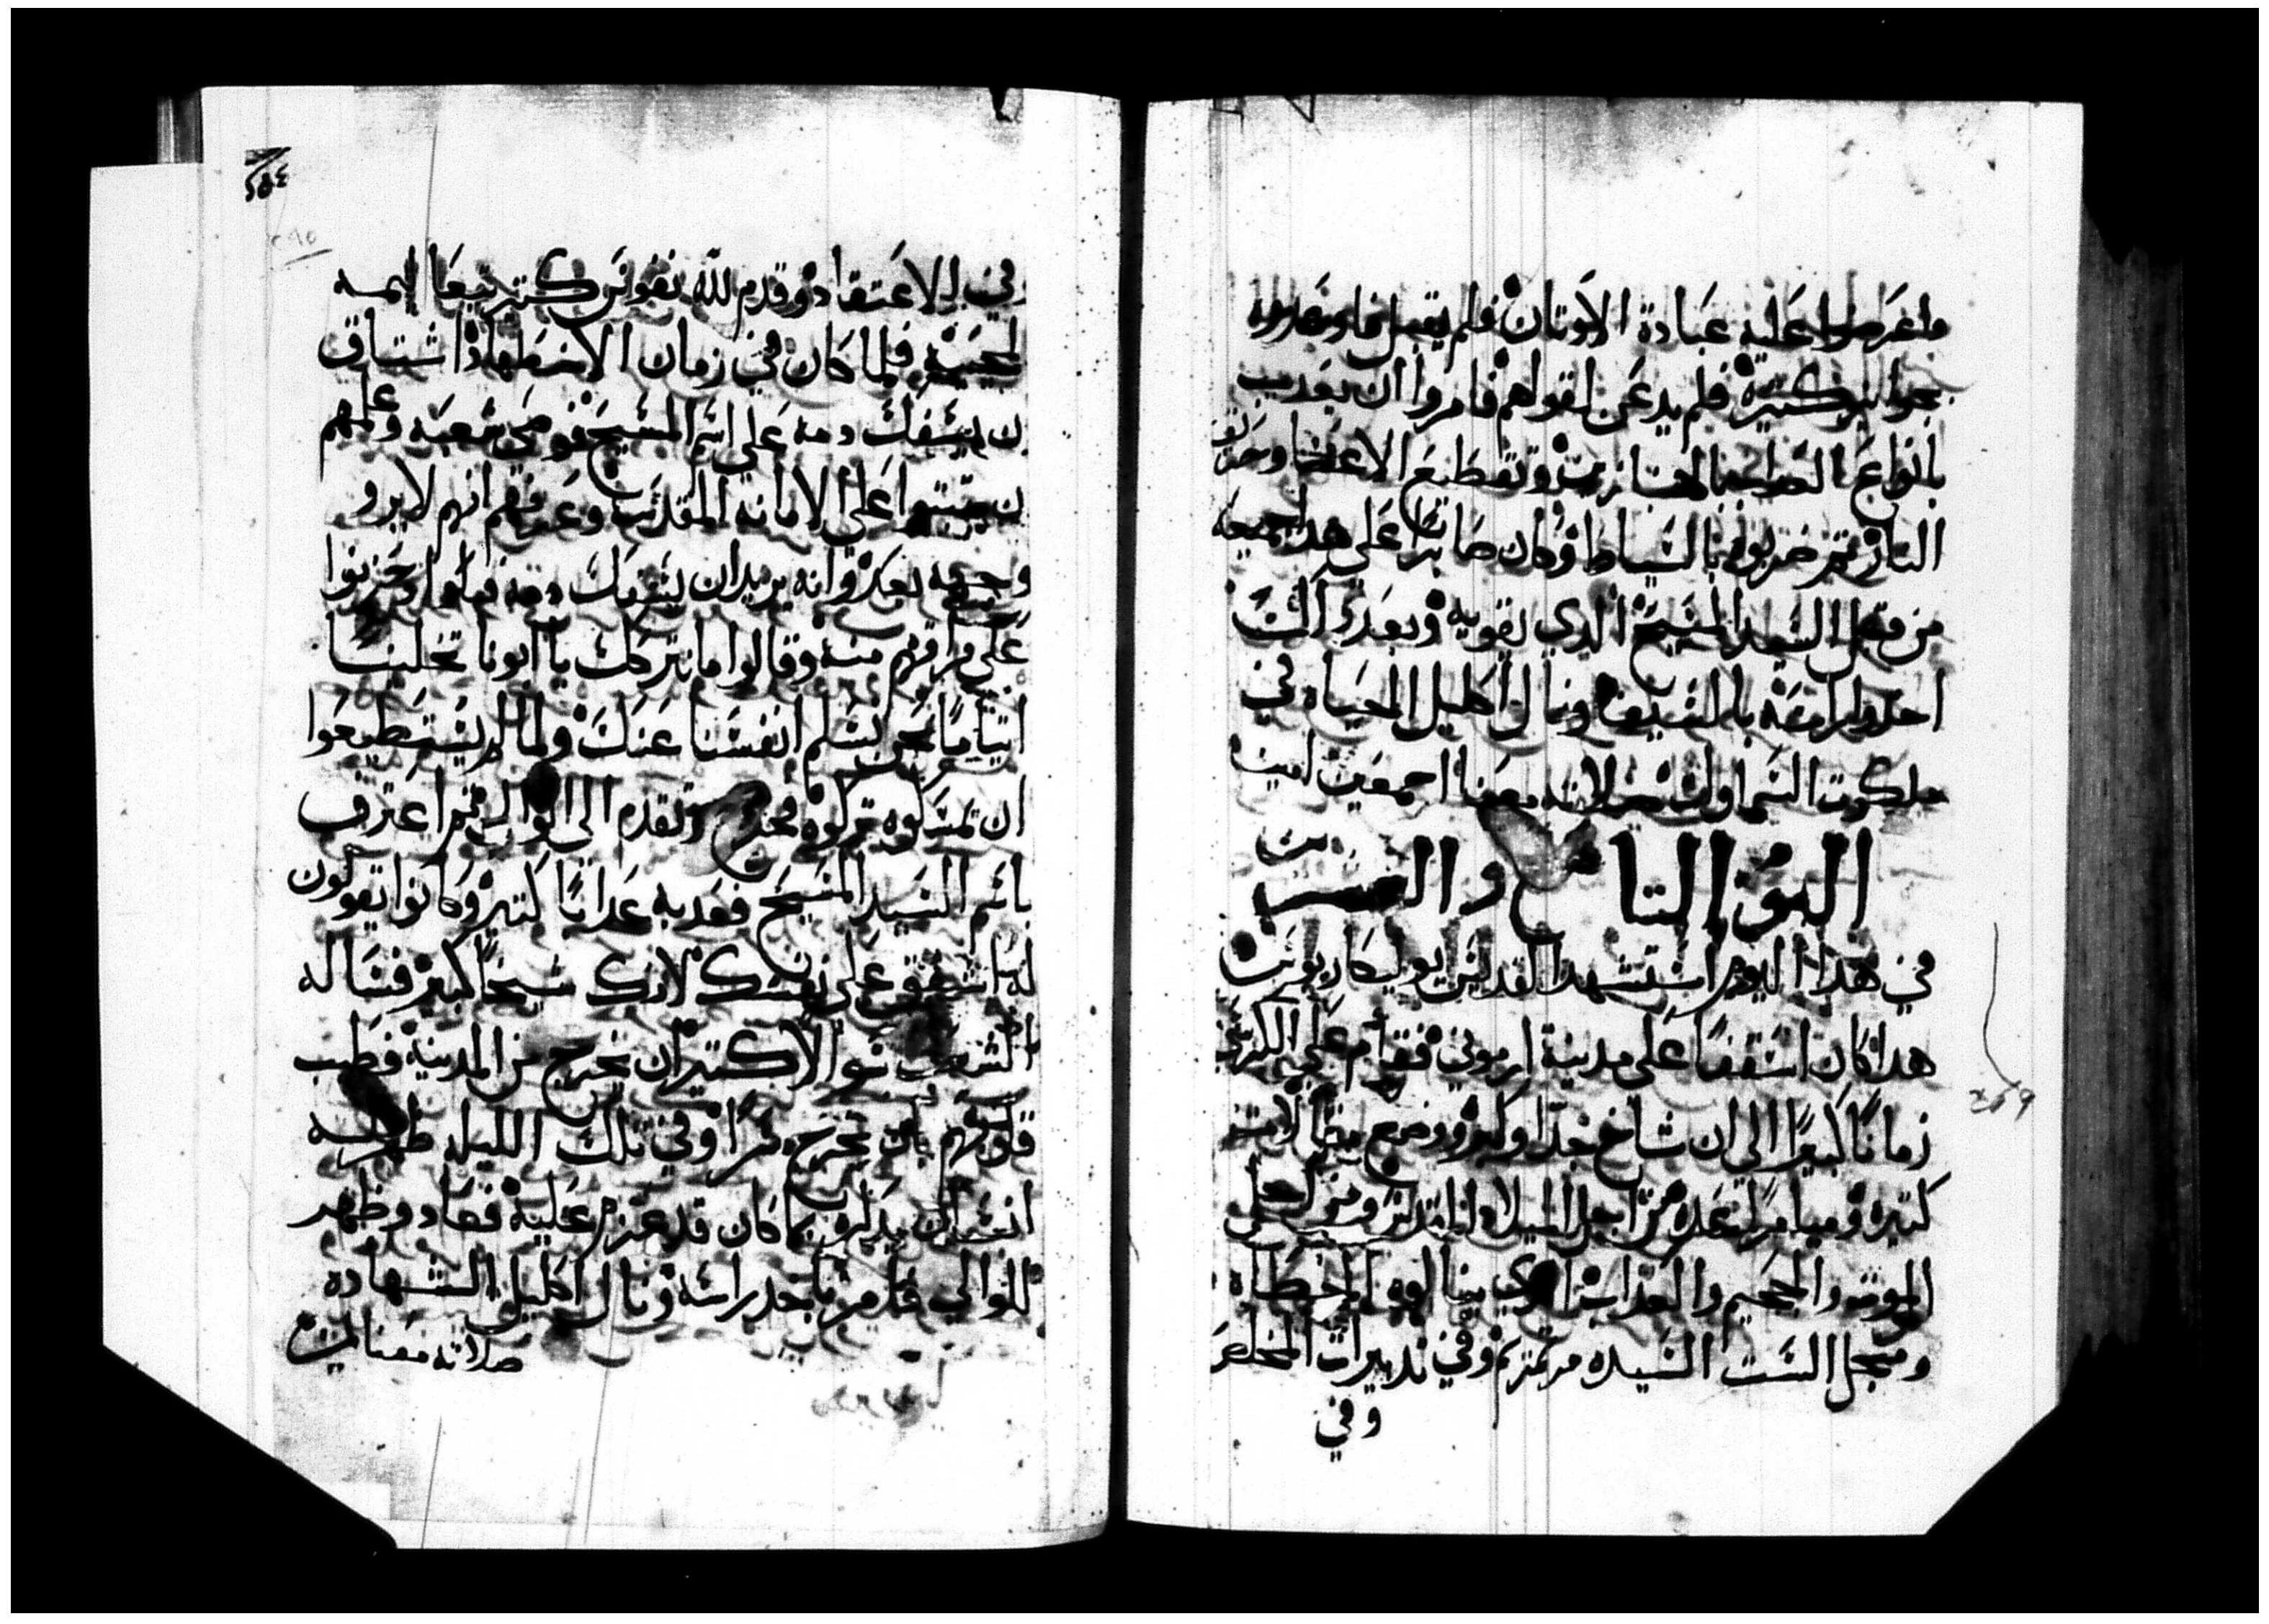 واعرضوا عليه عبادة الاوتان فلم يقبل فاوعدوه
بجوايز كتيرة فلم يدعن لقولهم فامروا ان يعديب
بانواع العداب بالهنبازين وتقطيع الاعضا وحريق
النار تم ضربوه بالسياط وكان صابرا على هدا جميعه
من قبل السيد المسيح الدي يقويه وبعد دلك
اخدوا راسه بالسيف ونال اكليل الحياه في
ملكوت السماوات صلاته معنا اجمعين امين
اليوم التاسع والعشرين
في هدا اليوم استشهد القديس بوليكاربوس
هدا كان اسقفا على مدينة ازموني فقام على الكرسي
زمانا كبيرا الي ان شاخ جدا وكبر ووضع مقالات
كتيره وميامر عده من اجل الميلاد ومن اجل
الموت والجحيم والعداب الدي ينالوه الخطاه
ومجل الست السيده مرتمريم وفي تدبيرات المخلص
وفي
٢٥٤
في الاعتقاد وقدم لله نفوس كتير تبعا ليمه
المحيية فلما كان في زمان الاضطهاد اشتاق
ان يسفك دمه على اسم المسيح فوصى شعبه وعلمهم
ان يتبتوا على الامانه المقدسة وعرفهم انهم لا يرو
وجهه بعد وانه يريد ان يسفك دمه فبكوا وحزنوا
على فراقهم منه وقالوا ما نتركك يا ابونا تخلينا
ايتاما نحن نسلم انفسنا عنك ولما لم يستطيعوا
ان تمسكوه تركوه فخرج وتقدم الى الوالي تم اعترف
باسم السيد المسيح فعدبه عدابا كتير وكانوا يقولون
له اشفق على نفسك لانك شيخا كبير فساله
الشعب نحو الاكتر ان يخرج من المدينة فطيب
قلوبهم بان يخرج سرا وفي تلك الليله ظهر له
انسان يدكره بما كان قد عزم عليه فعاد وظهر
للوالي فامر باخد راسه ونال اكليل الشهاده
صلاته معنا امين